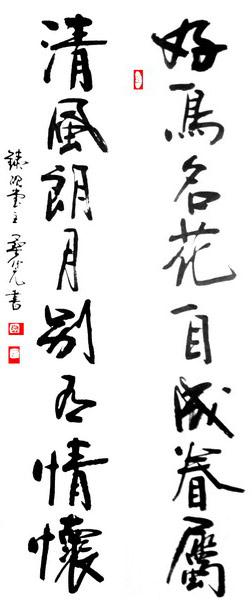 好鳥名花自成眷屬
清風朗月別有情懷